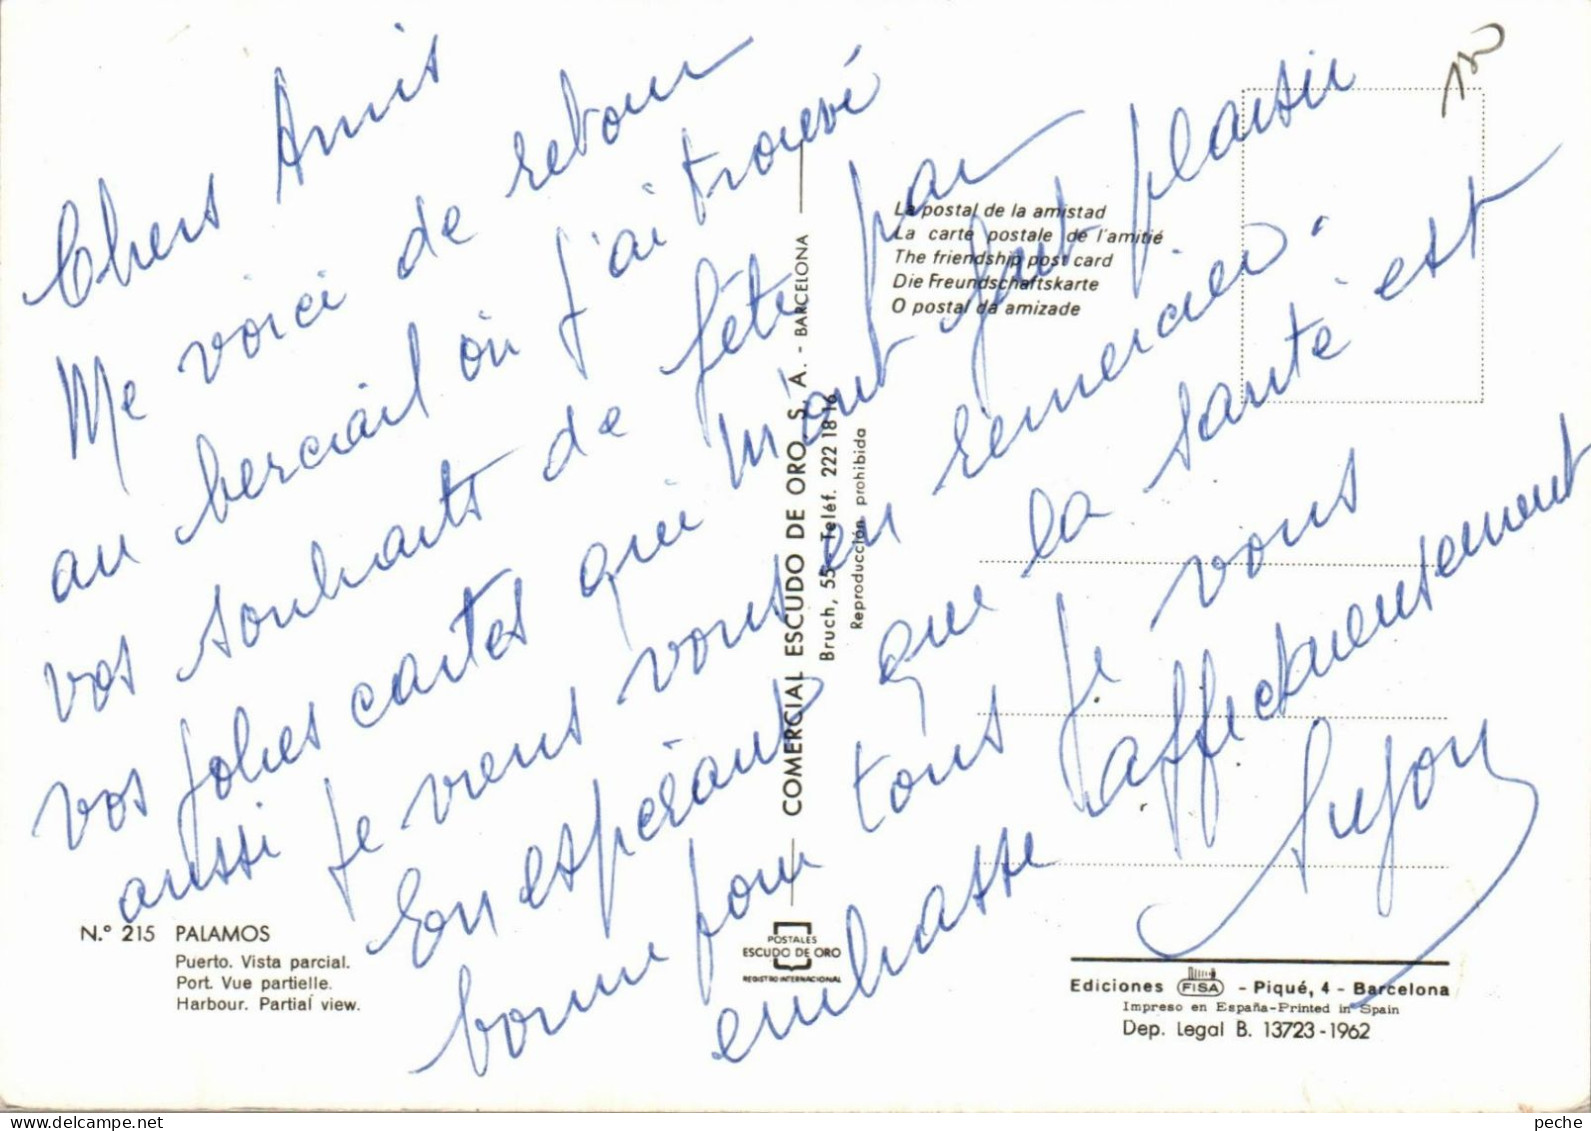 Chers Amis
Me voici de retour
au berciail où j'ai trouvé
vos souhaits de fête par
vos jolies cartes qui m'ont fait plaisir
aussi je viens vous en remercier.
En espérant que la santé est
bonne pour tous je vous
embrasse affectueusement
La postal de la amistad
La carte postale de l'amitié
The friendship post card
Die Freundschaftskarte
O postal da amizade
COMERCIAL ESCUDO DE ORO, S. A. - BARCELONA
Bruch, 55 - Teléf. 222 18 16
Reproducción prohibida
N.º 215 PALAMOS
Puerto. Vista parcial.
Port. Vue partielle.
Harbour. Partial view.
POSTALES
ESCUDO DE ORO
REGISTRO INTERNACIONAL
Ediciones FISA - Piqué, 4 - Barcelona
Impreso en España-Printed in Spain
Dep. Legal B. 13723-1962
peche